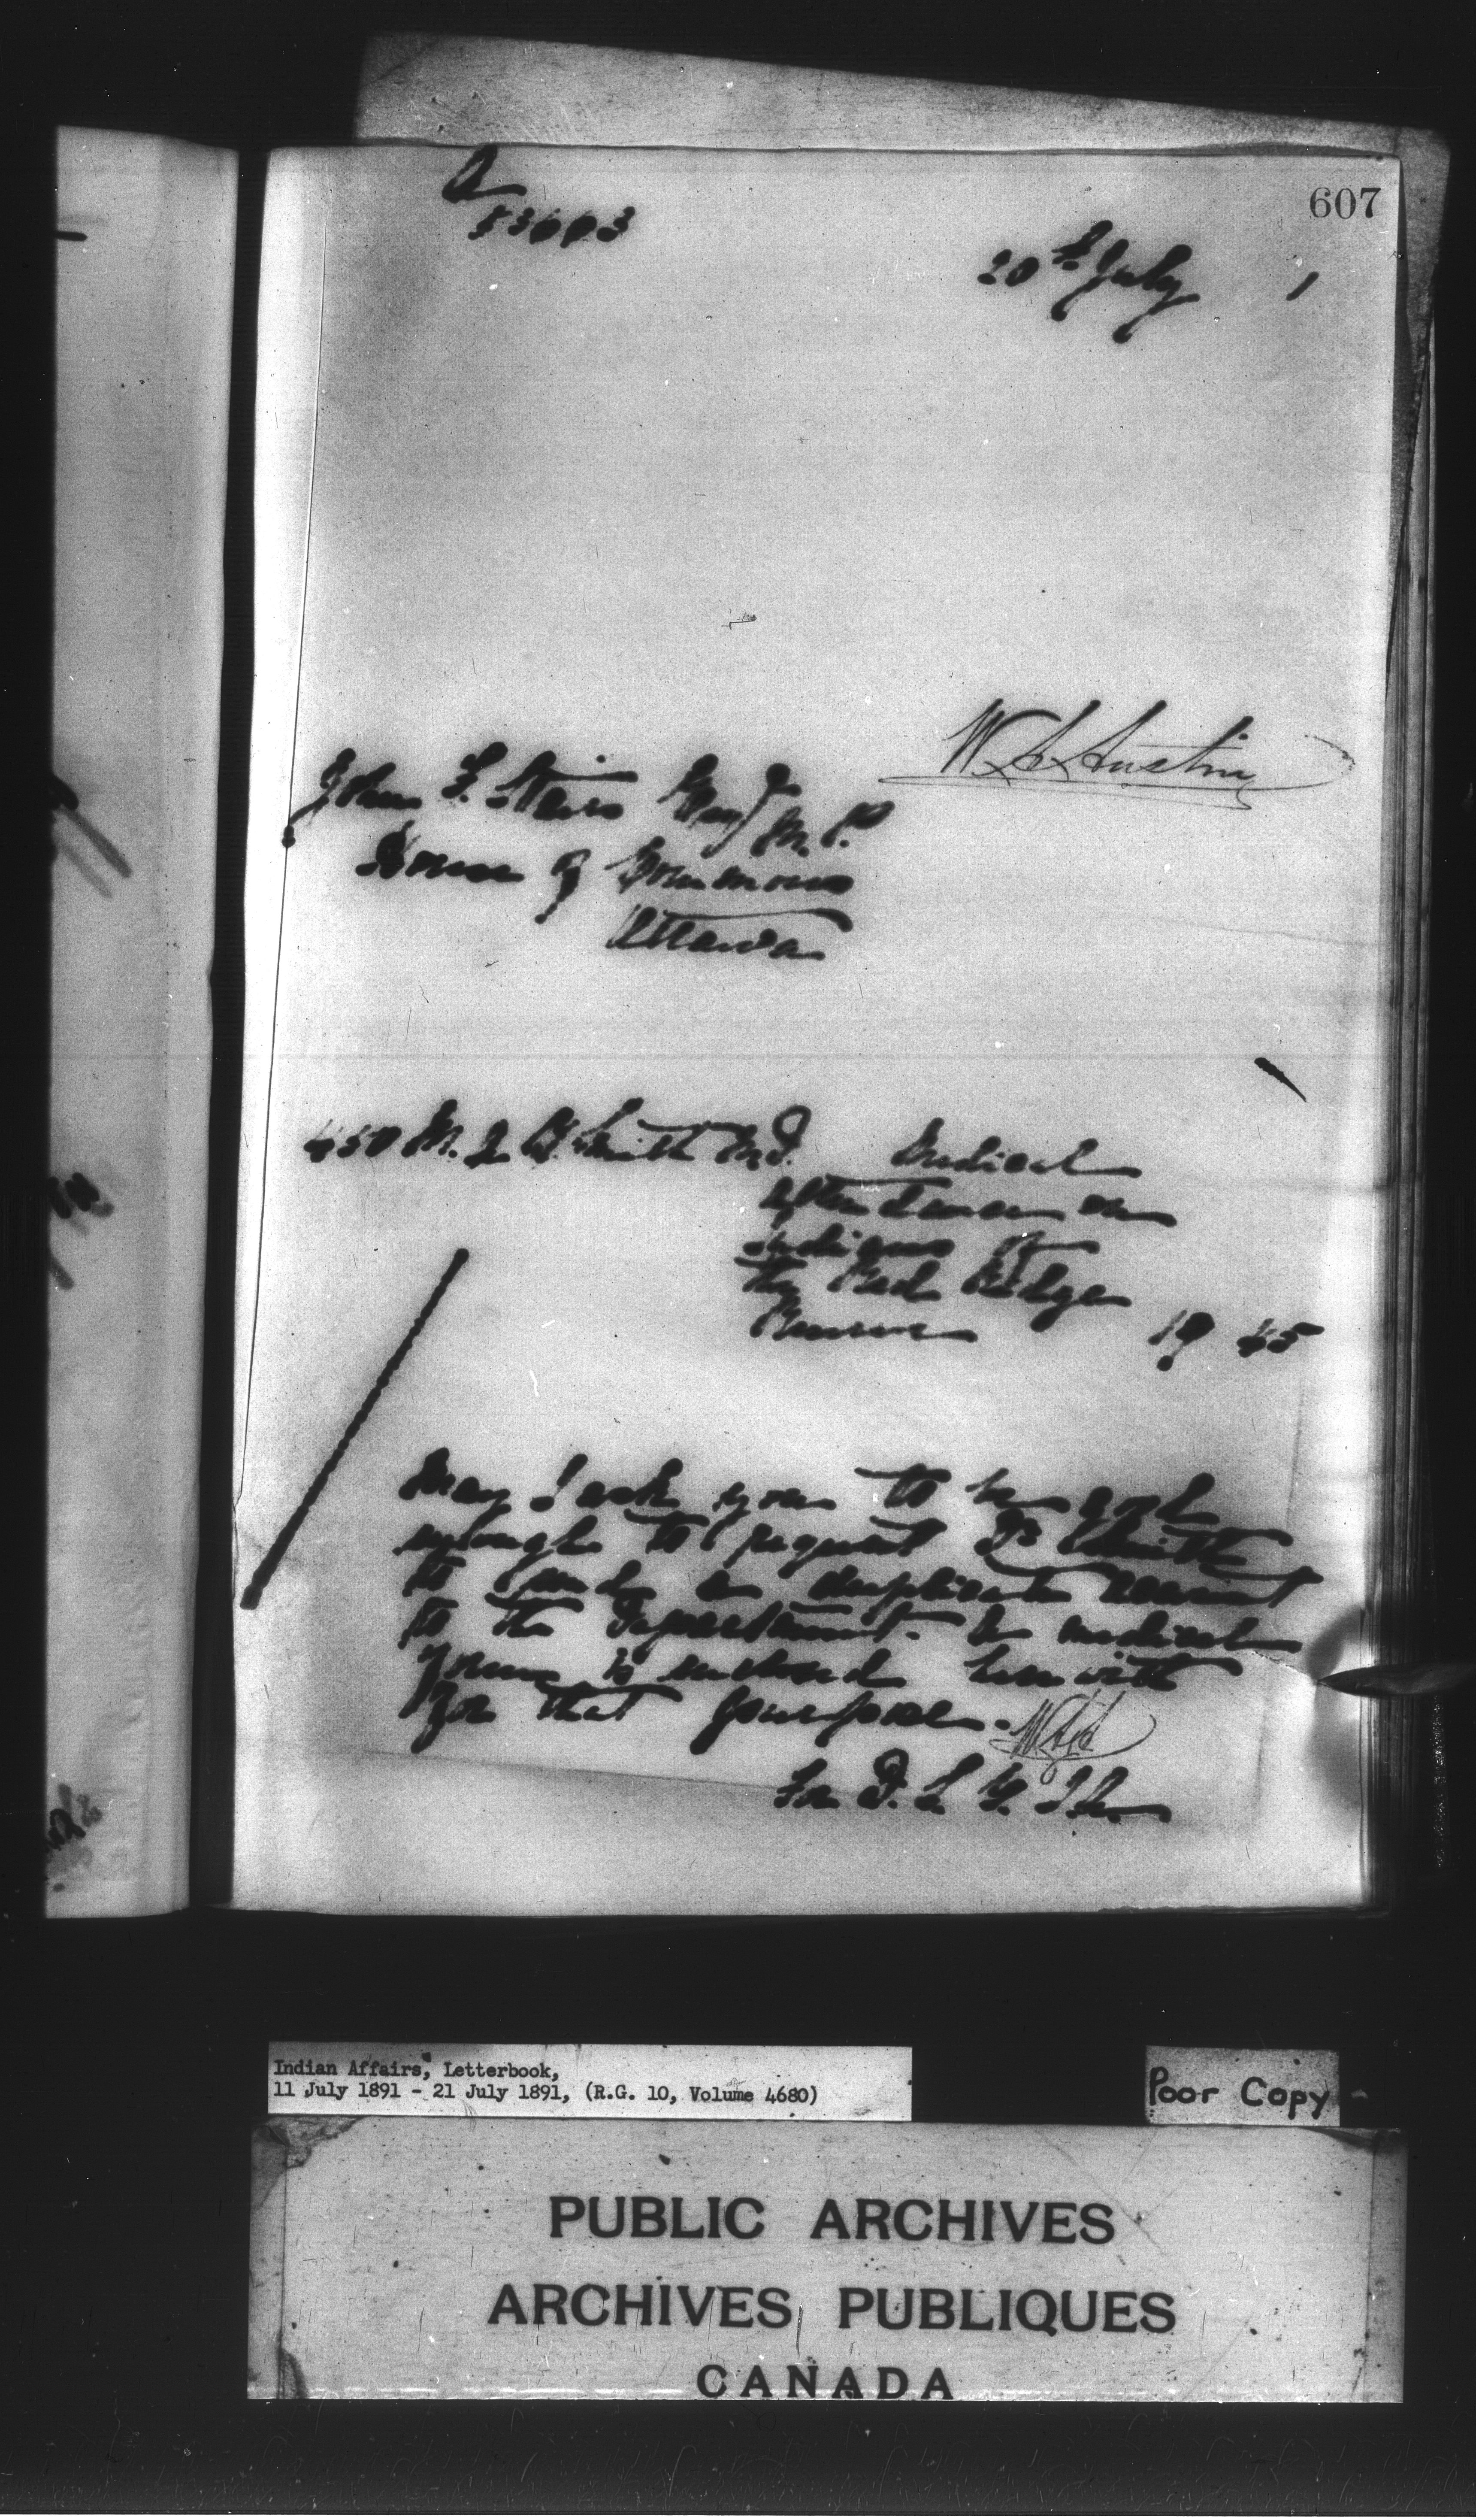 607
20th July 1
W. A. Austin
John F. Stairs Esq M.P.
House of Commons
Ottawa
450 M. D. Smith M.D. Medical
attendance on
Indians of
the Ridge
Reserve 19 45
May I ask you to be good
enough to request Dr Smith
to send a duplicate account
to the Department. A medical
form is enclosed herewith
for that purpose. WAA
For D. S. G. I. A.
Indian Affairs, Letterbook,
11 July 1891 - 21 July 1891, (R.G. 10, Volume 4680)
Poor Copy
PUBLIC ARCHIVES
ARCHIVES PUBLIQUES
CANADA